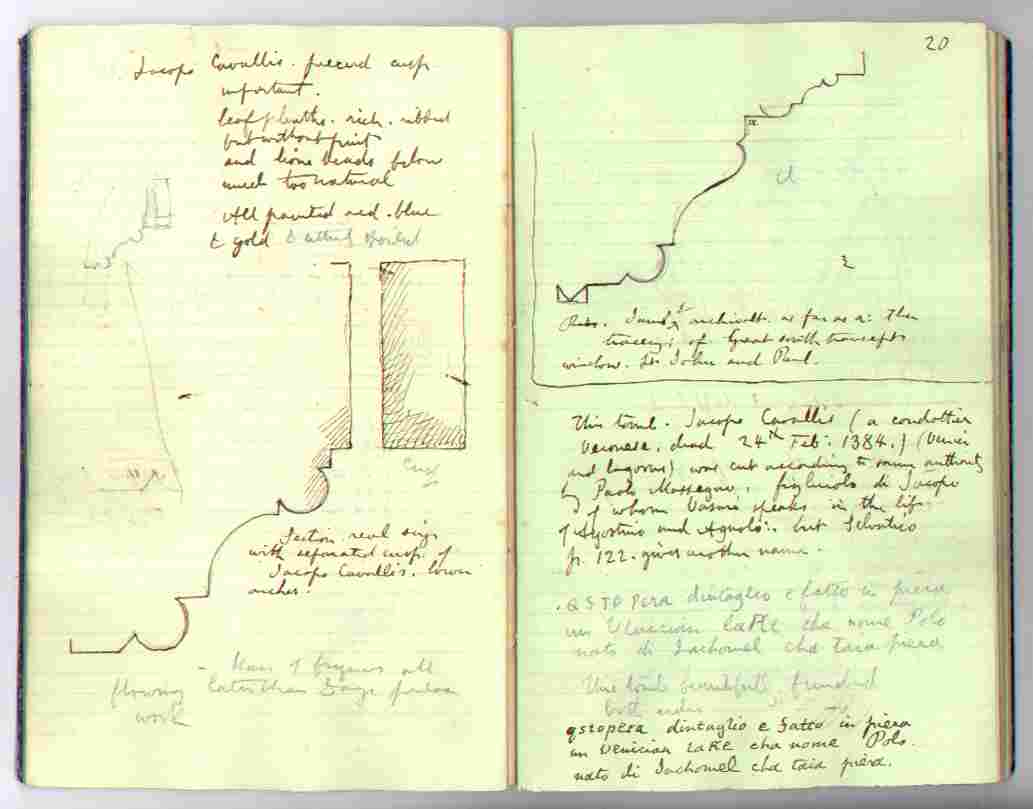 Jacopo Cavallis. pierced cusp
important.
leaf plinths. rich. ribbed
but without fruit
and lions heads below
much too natural
All painted red. blue
& gold & utterly spoiled
Cusp
Section real size
with separated cusp. of
Jacopo Cavallis. lower
arches.
flowing later than Doge
work
20
a
Jamb & archivolt. as far as a: the
tracery; of Great south transept
window. SS. John and Paul.
This tomb. Jacopo Cavallis (a condottier
Veronese, dead 24th Feb: 1384.) (Venier
and Lagorns) was cut according to many authority
by Paolo Massegno, figliuolo di Jacopo
of whom Vasari speaks in the life
of Agostino and Agnolo:. but Selvatico
p. 122. gives another name.
. QSTO PERA dintaglio e fatto in piera
un Venician laRE cha nome Polo
nato di Jachomel cha taia piera
This tomb beautifully
both sides
qstopera dintaglio e Fatto in piera
un Venician LaRE cha nome Polo.
nato di Jachomel cha taia piera.